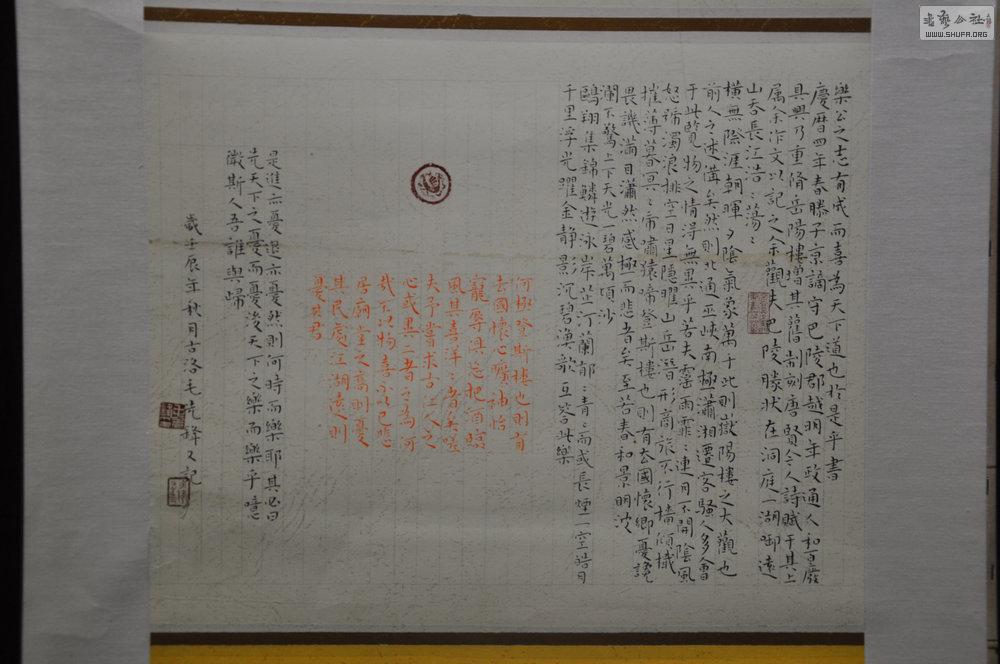 樂公之志有成而喜為天下道也於是乎書
慶曆四年春滕子京謫守巴陵郡越明年政通人和百廢
具興乃重脩岳陽樓增其舊制刻唐賢今人詩賦于其上
属余作文以記之余觀夫巴陵勝狀在洞庭一湖啣遠
山吞長江浩〻蕩〻
橫無際涯朝暉夕陰氣象萬千此則嶽陽樓之大觀也
前人之述備矣然則北通巫峽南極瀟湘遷客騷人多會
于此覽物之情得無異乎若夫霪雨霏〻連月不開陰風
怒號濁浪排空日星隱曜山岳潛形商旅不行檣傾檝
摧薄暮冥〻帝嘯猿啼登斯樓也則有去國懷鄉憂讒
畏譏滿目瀟然感極而悲者矣至若春和景明波
瀾不驚上下天光一碧萬頃沙
鷗翔集錦鱗遊泳岸芷汀蘭郁〻青〻而或長煙一空皓月
千里浮光躍金靜影沉碧漁歌互答此樂
何極登斯樓也則有
去國懷心曠神怡
寵辱俱忘把酒臨
風其喜洋〻者矣嗟
夫予嘗求古仁人之
心或異二者之為何
哉不以物喜不以己悲
居廟堂之高則憂
其民處江湖遠則
憂其君
是進亦憂退亦憂然則何時而樂耶其必曰
先天下之憂而憂後天下之樂而樂乎噫
微斯人吾誰與歸
歲壬辰年秋月古洛毛先鋒又記
書藝公社
WWW.SHUFA.ORG